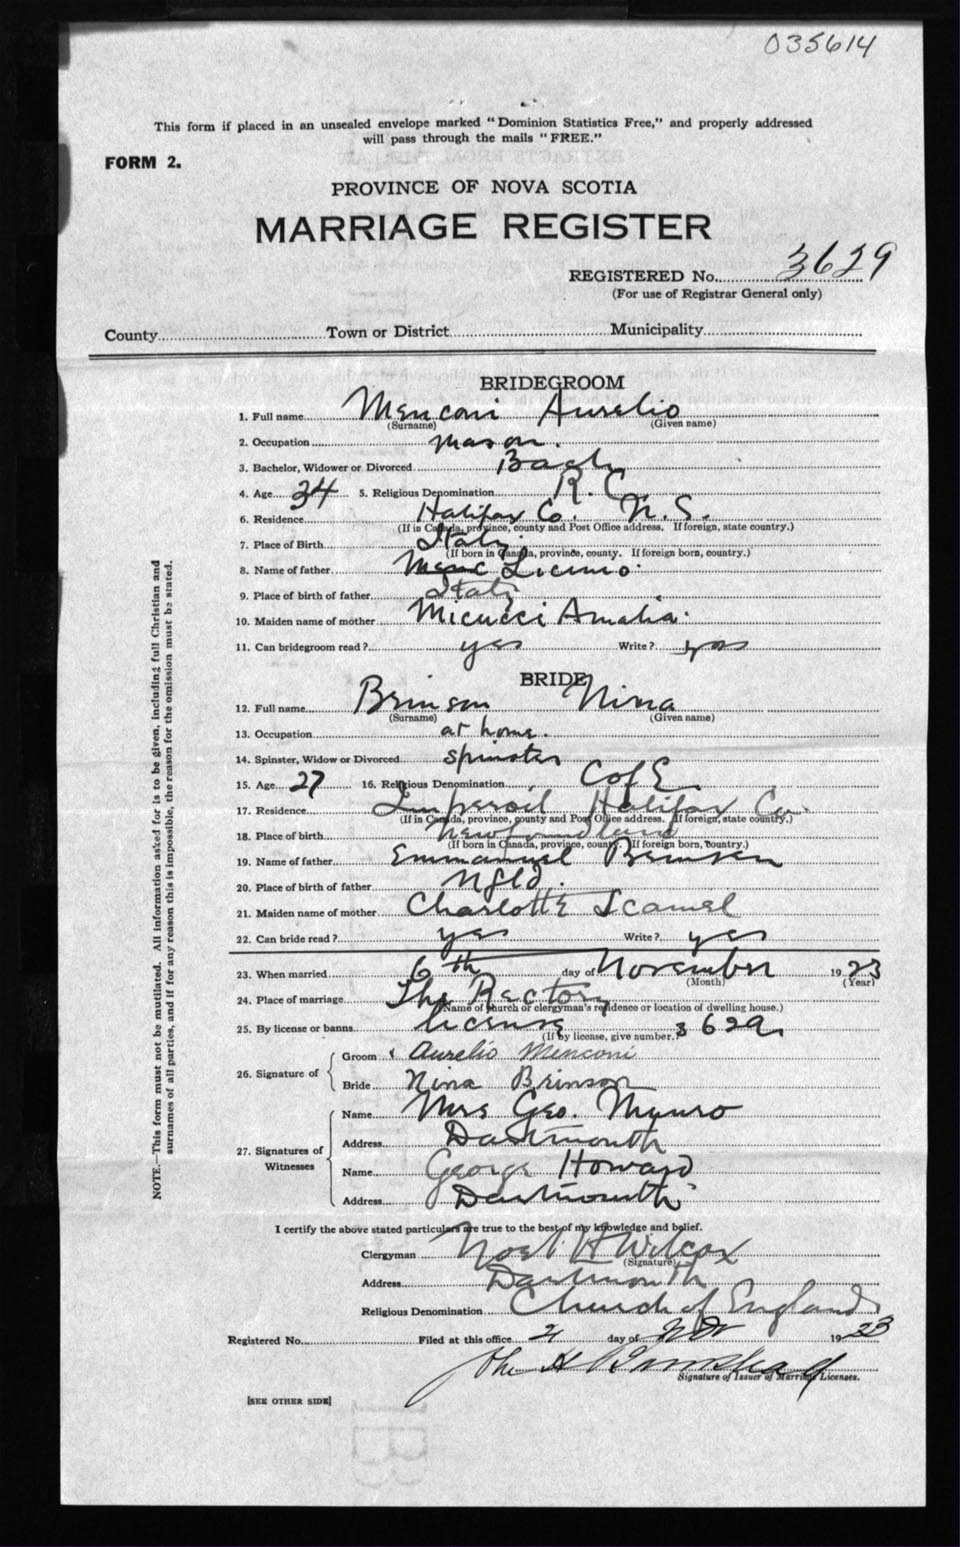 035614
This form if placed in an unsealed envelope marked "Dominion Statistics Free," and properly addressed
will pass through the mails "FREE."
FORM 2.
PROVINCE OF NOVA SCOTIA
MARRIAGE REGISTER
REGISTERED No. 3629
(For use of Registrar General only)
County Town or District Municipality
BRIDEGROOM
1. Full name Menconi Aurelio
(Surname) (Given name)
2. Occupation mason.
3. Bachelor, Widower or Divorced Bach
4. Age 34 5. Religious Denomination R. C
6. Residence Halifax Co. N. S.
(If in Canada, province, county and Post Office address. If foreign, state country.)
7. Place of Birth Italy.
(If born in Canada, province, county. If foreign born, country.)
8. Name of father Licinio
9. Place of birth of father Italy
10. Maiden name of mother Micucci Amalia
11. Can bridegroom read? yes Write? yes
BRIDE
12. Full name Brinson Nina
(Surname) (Given name)
13. Occupation at home.
14. Spinster, Widow or Divorced spinster
15. Age 27 16. Religious Denomination C of E
17. Residence Imperoil Halifax Co.
(If in Canada, province, county and Post Office address. If foreign, state country.)
18. Place of birth Newfoundland
(If born in Canada, province, county. If foreign born, country.)
19. Name of father Emmanuel Brinson
20. Place of birth of father Nfld.
21. Maiden name of mother Charlotte Scamel
22. Can bride read? yes Write? yes
23. When married 6th day of November 1923
(Month) (Year)
24. Place of marriage The Rectory
(Name of church or clergyman's residence or location of dwelling house.)
25. By license or banns license 3629
(If by license, give number.)
26. Signature of
Groom Aurelio Menconi
Bride Nina Brinson
27. Signatures of Witnesses
Name Mrs Geo. Munro
Address Dartmouth
Name George Howard
Address Dartmouth
I certify the above stated particulars are true to the best of my knowledge and belief.
Clergyman Noel H Wilcox
(Signature)
Address Dartmouth
Religious Denomination Church of England
Registered No. Filed at this office 2 day of Nov 1923
Signature of Issuer of Marriage Licenses.
[SEE OTHER SIDE]
NOTE.—This form must not be mutilated. All information asked for is to be given, including full Christian and
surnames of all parties, and if for any reason this is impossible, the reason for the omission must be stated.